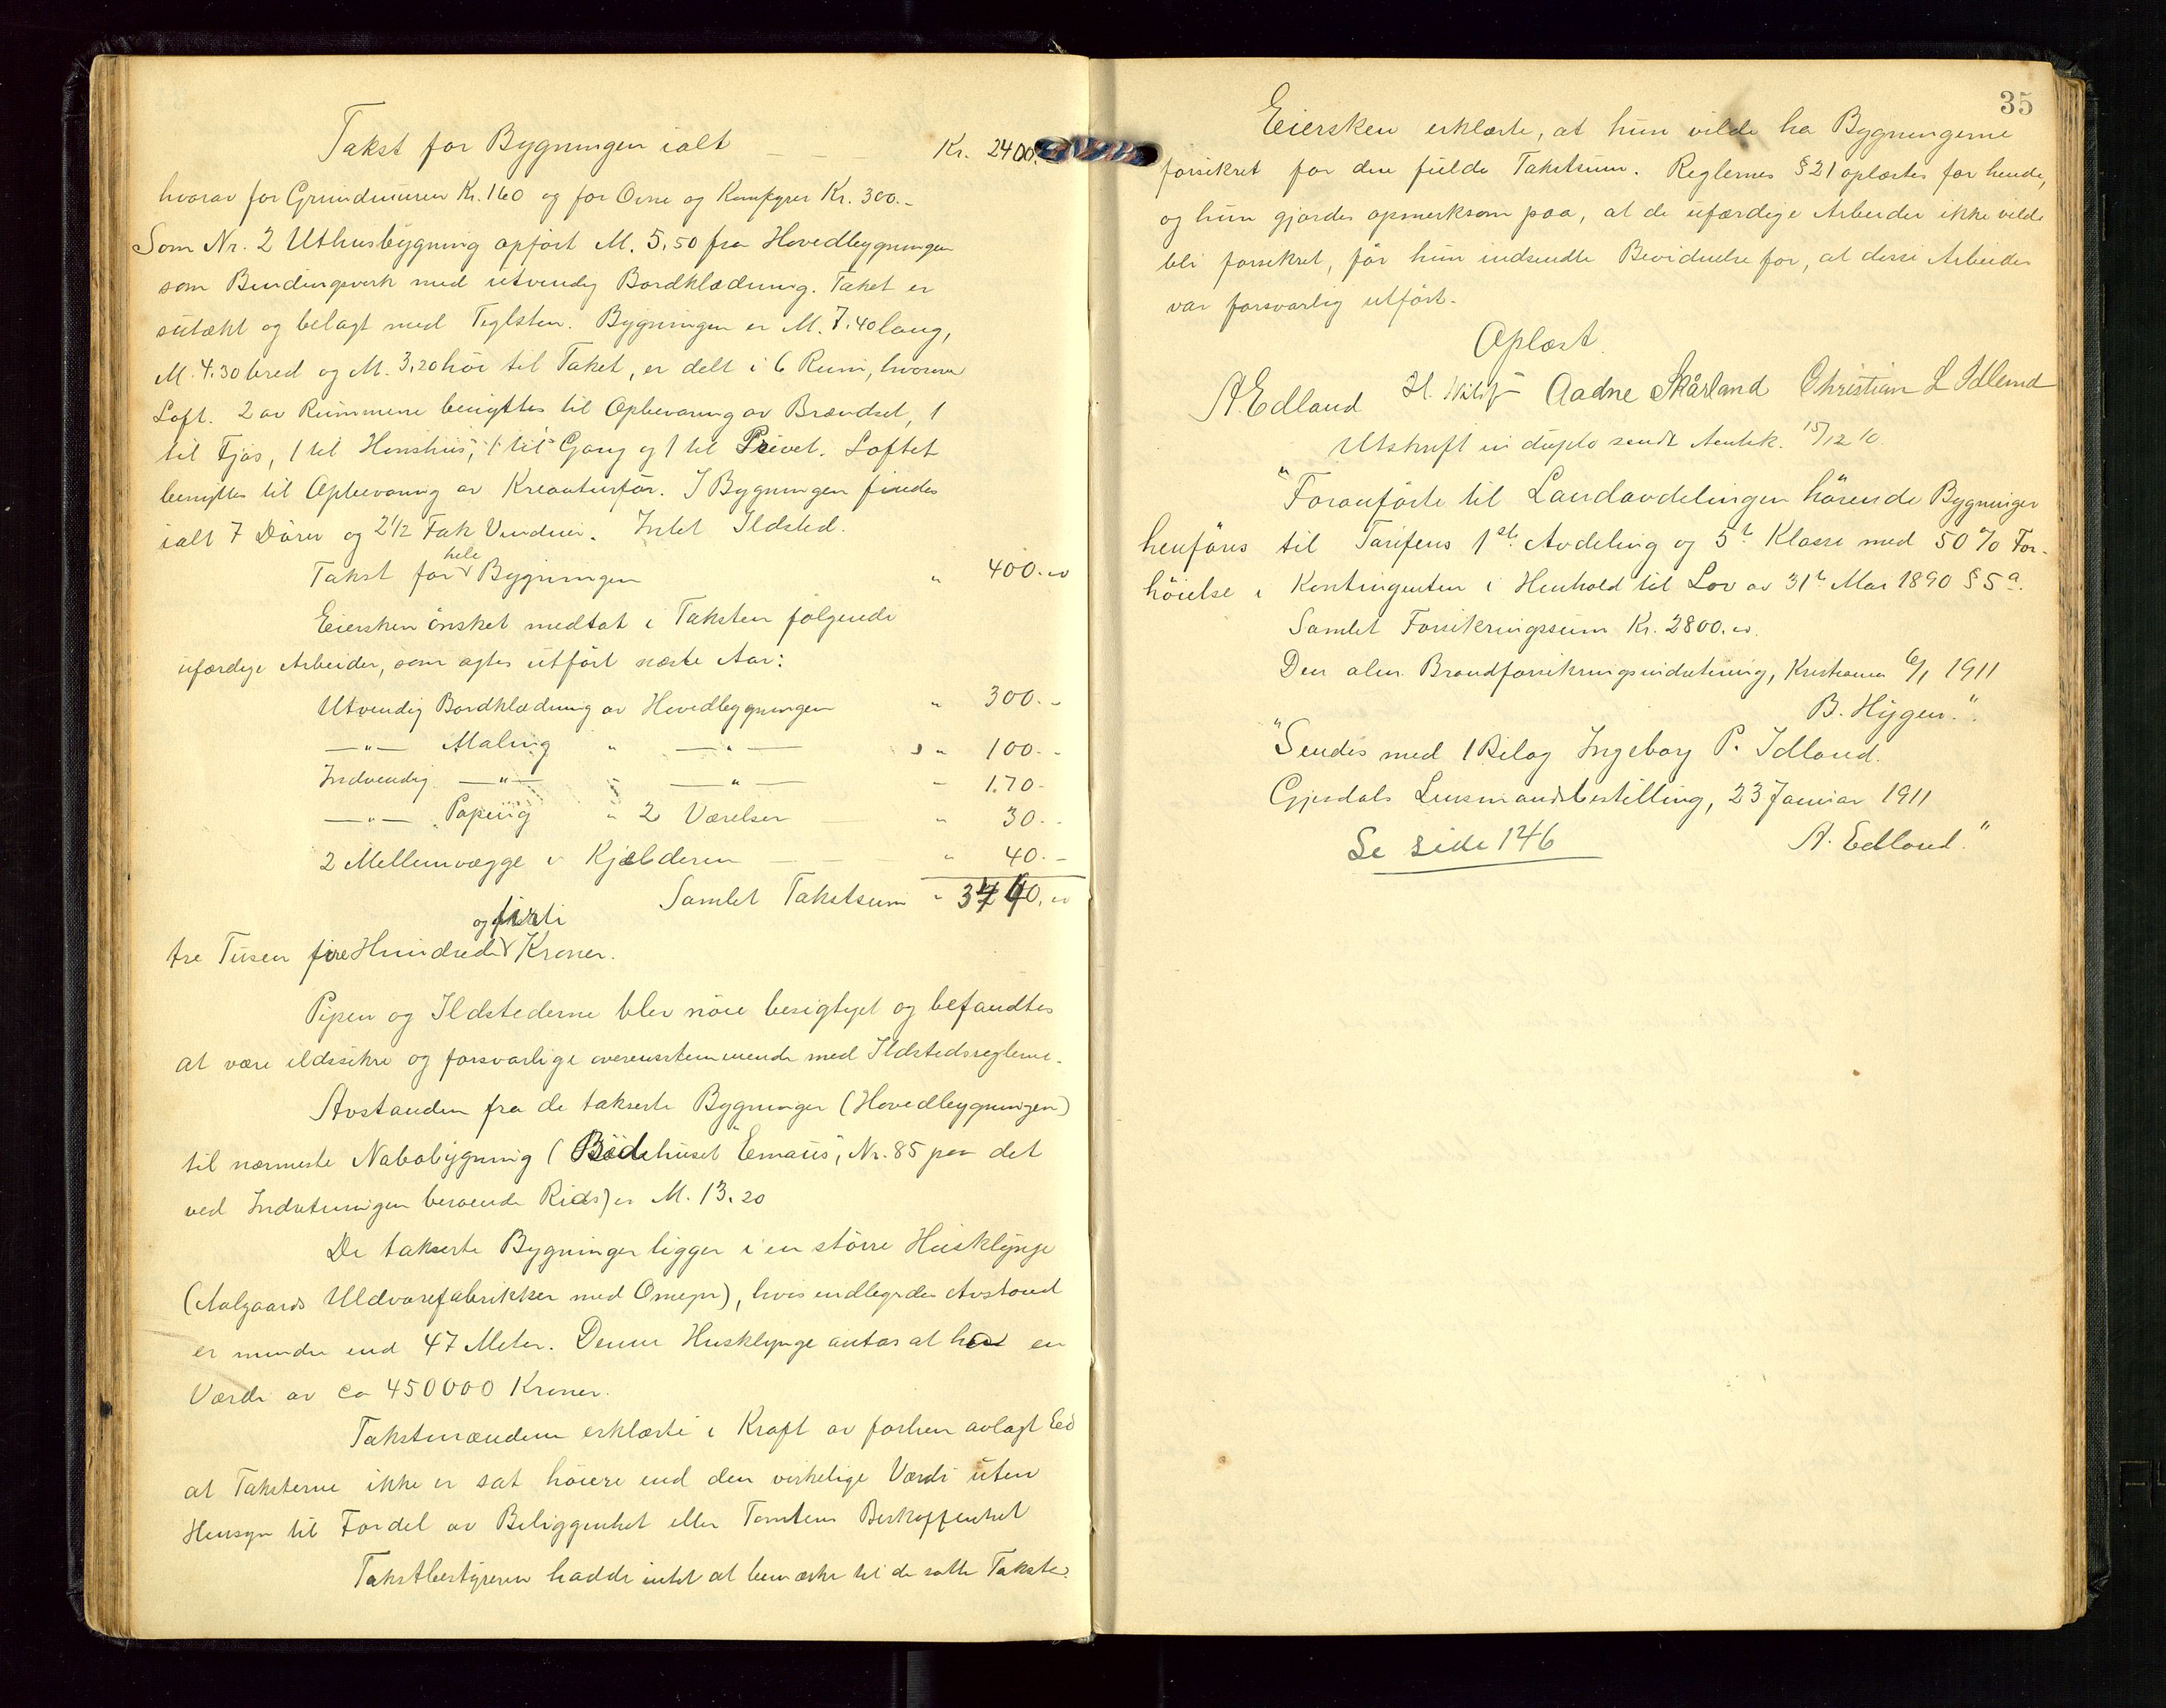 Takst for Bygningen ialt — — Kr. 2400.
hvorav for Grundmuren Kr. 160 og for Ovne og Komfyrer Kr. 300.-
Som Nr. 2 Uthusbygning opført M. 5,50 fra Hovedbygningen
som Bindingsverk med utvendig Bordklædning. Taket er
sutækt og belagt med Teglsten. Bygningen er M. 7.40 lang,
M. 4.30 bred og M. 3,20 høi til Taket, er delt i 6 Rum, hvorav
Loft. 2 av Rummene benyttes til Opbevaring av Brændsel, 1
til Fjøs, 1 til Hønshus, 1 til Gang og 1 til Privet. Loftet
benyttes til Opbevaring av Kreaturfor. I Bygningen findes
ialt 7 Dører og 2 1/2 Fak Vinduer. Intet Ildsted.
hele
Takst for Bygningen " 400.
Eiersken ønsket medtat i Taksten følgende
ufærdige Arbeider, som agtes utført næste Aar:
Utvendig Bordklædning av Hovedbygningen " 300.-
—"— Maling " —"— " 100.-
Indvendig —"— " —"— - 170-
—"— Papring " 2 Værelser — " 30.-
2 Mellemvægge i Kjælderen — — " 40.-
Samlet Takstsum " 3440.
og firti
tre Tusen fire Hundrede Kroner.
Pipen og Ildstederne blev nøie besigtyet og befandtes
at være ildssikre og forsvarlige overensstemmende med Ildstedsreglerne.
Avstanden fra de takserte Bygninger (Hovedbygningen)
til nærmeste Nabobygning (Bedehuset "Emaus", Nr. 85 paa det
ved Indretningen beroende Rids) er M. 13.20
De takserte Bygninger ligger i en större Husklynge
(Aalgaards Uldvarefabrikker med Omegn), hvis indbyrdes Avstand
er mindre end 47 Meter. Denne Husklynge antas at ha en
Værdi av ca 450000 Kroner.
Takstmændene erklærte i Kraft av forhen avlagt Ed
at Taksterne ikke er sat höiere end den virkelige Værdi uten
Hensyn til Fordel av Beliggenhet eller Tomtens Beskaffenhet
Takstbestyreren hadde intet at bemærke til de satte Takster.
35
Eiersken erklærte, at hun vilde ha Bygningerne
forsikret for den fulde Takstsum. Reglernes § 21 oplæstes for hende,
og hun gjordes opmerksom paa, at de ufærdige Arbeider ikke vilde
bli forsikret, før hun indsendte Bevidnelse for, at disse Arbeider
var forsvarlig utført.
Oplæst.
A. Edland H. Aadne Skårland Christian L Idland
Utskrift in duplo sendt Amtsk. 15/12 10.
"Foranførte til Landavdelingen hørende Bygninger
henføres til Tarifens 1ste Avdeling og 5te Klasse med 50% For-
höielse i Kontingenten i Henhold til Lov av 31te Mai 1890 § 5a.
Samlet Forsikringssum Kr. 2800.
Den alm. Brandforsikringsindretning, Kristiania 6/1 1911
B. Hygen."
"Sendes med 1 Bilag Ingeborg P. Idland.
Gjesdals Lensmandsbestilling, 23 Januar 1911
A. Edland."
Se side 146